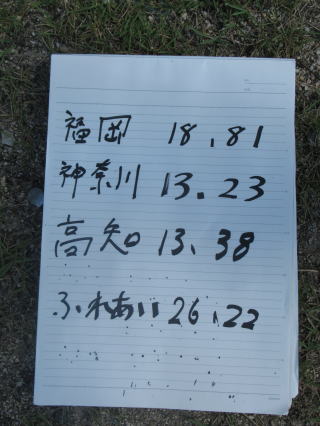 福岡 18.81
神奈川 13.23
高知 13.38
ふれあい 26.22